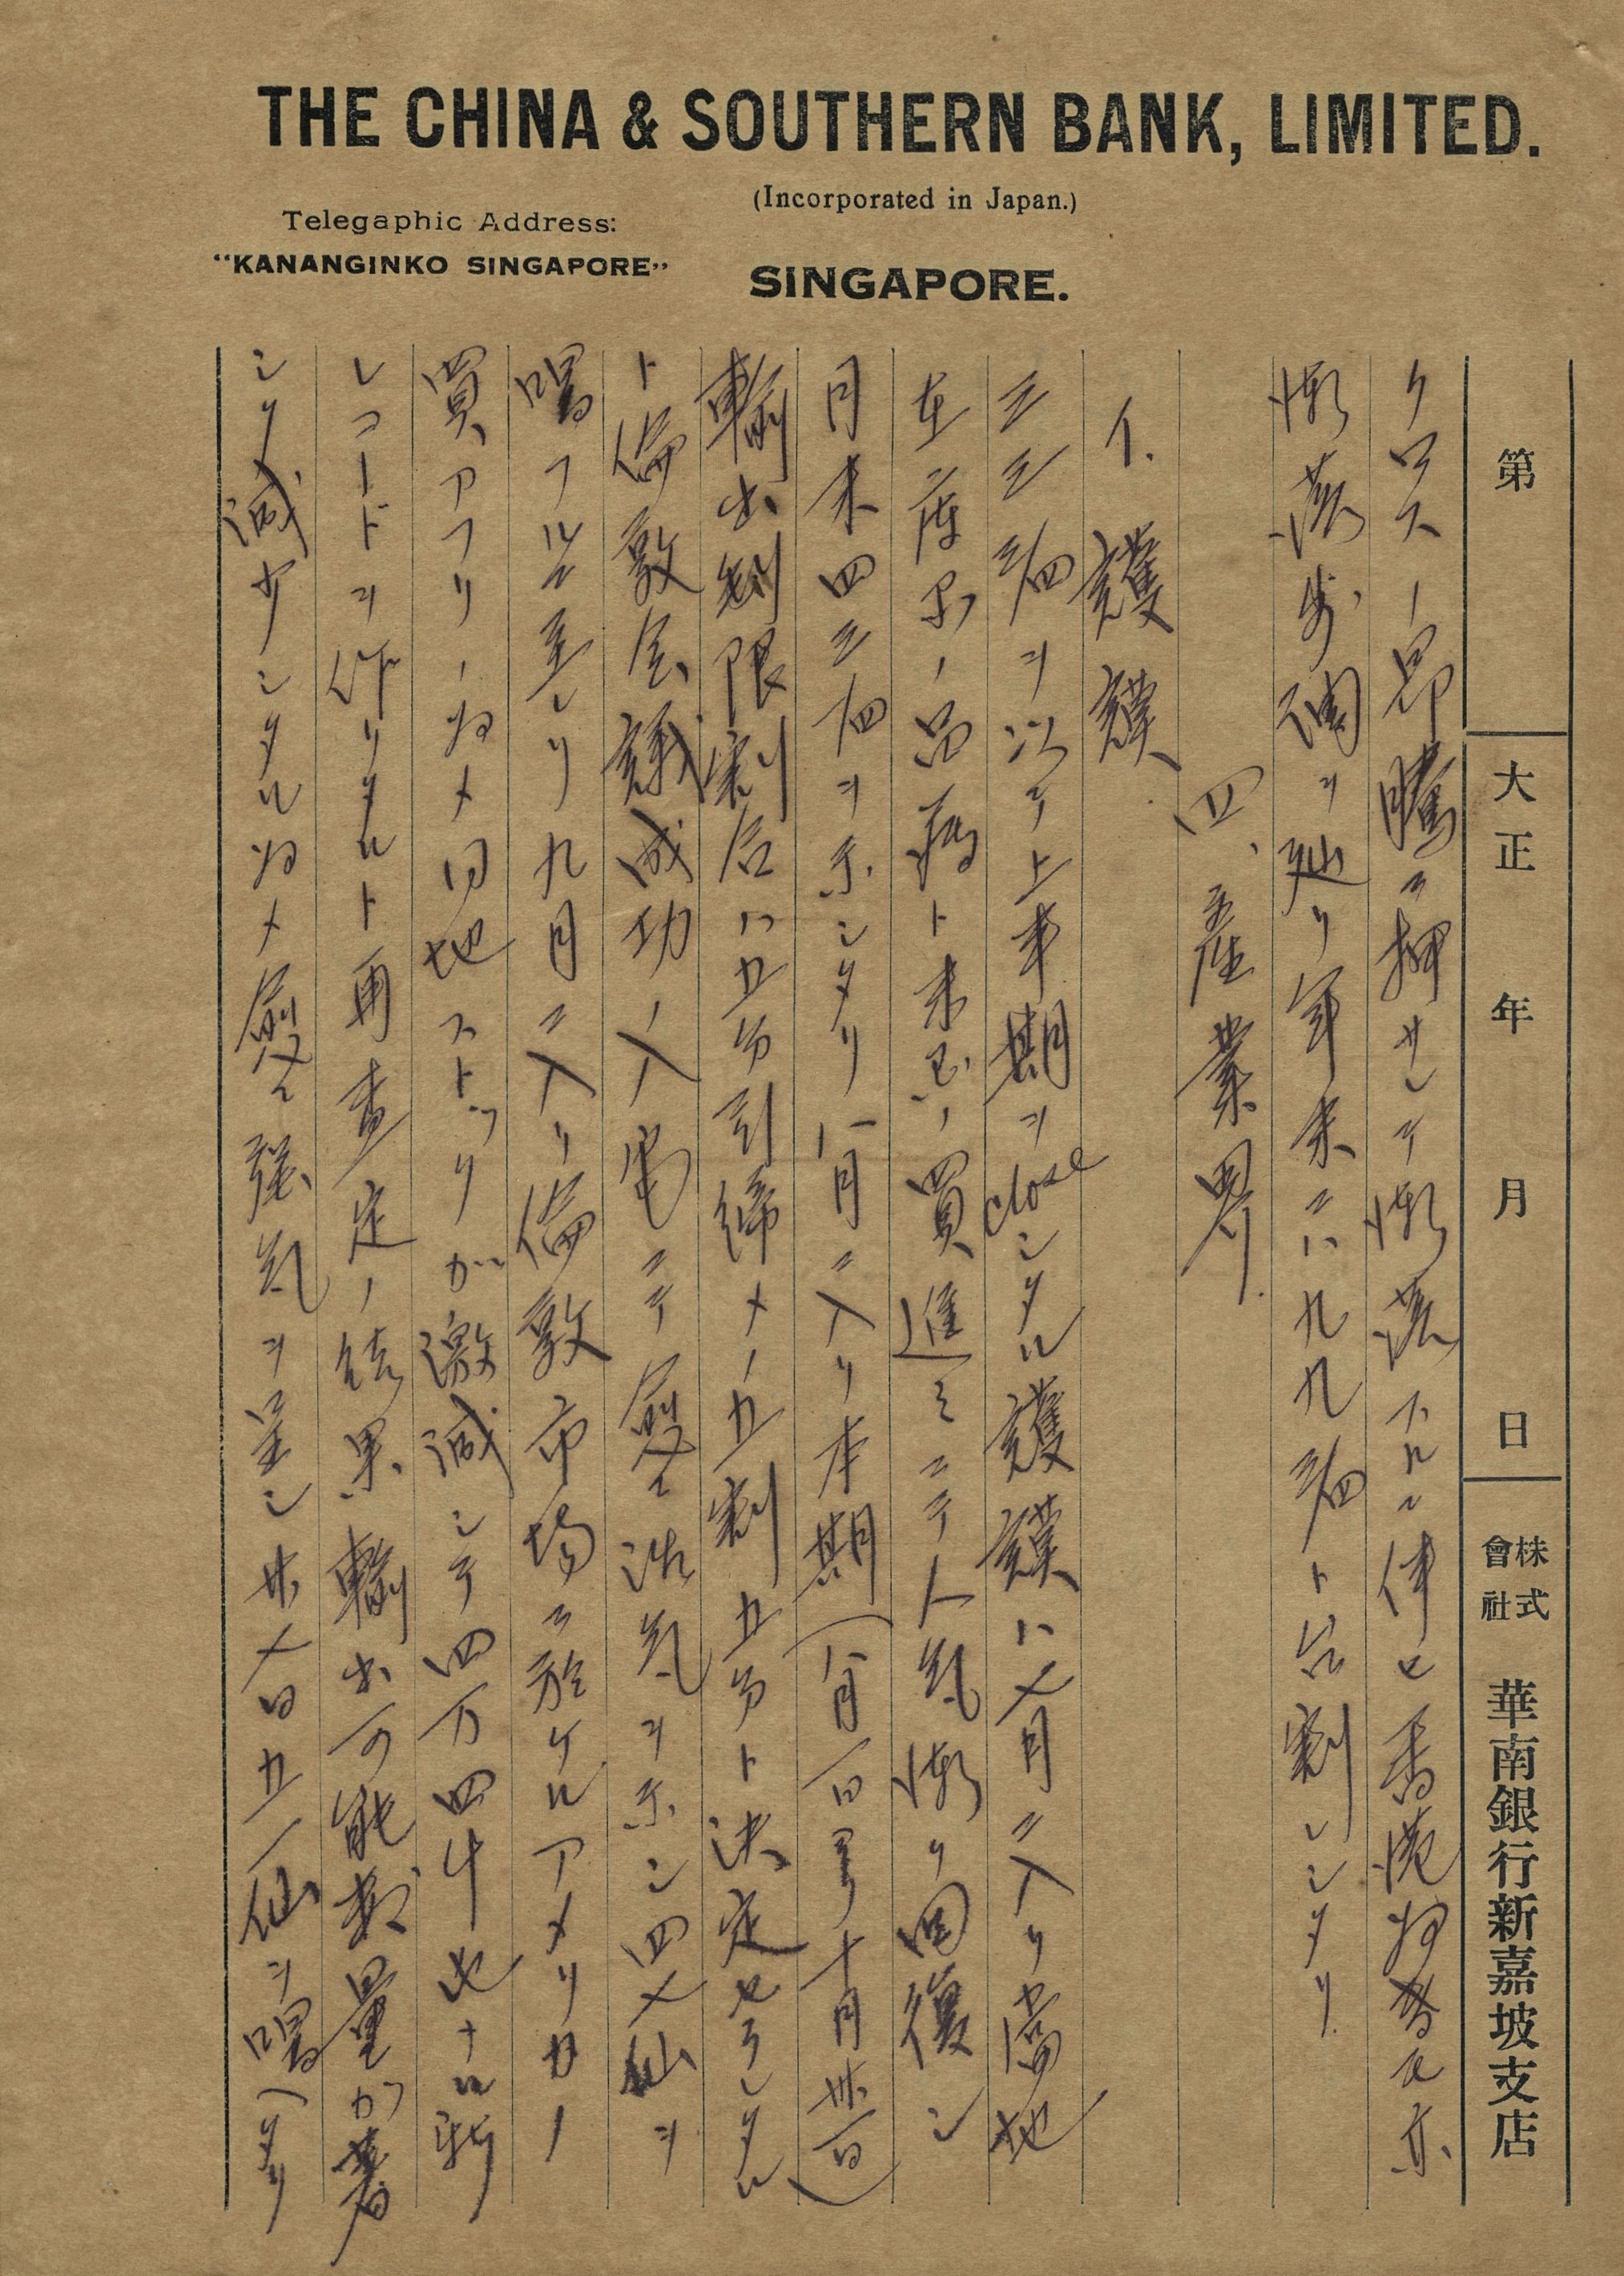 THE CHINA & SOUTHERN BANK, LIMITED.
(Incorporated in Japan.)
Telegaphic Address:
"KANANGINKO SINGAPORE"
SINGAPORE.
第
大正 年 月 日
株式會社 華南銀行新嘉坡支店
クロスノ昂騰ニ押サレテ漸落スルニ伴ヒ香港為替モ亦
漸落歩調ヲ辿リ年末ニハ九九 ト台割レシタリ
四、産業界
イ. 護謨
ヲ以テ上半期ヲcloseシタル護謨ハ七月ニ入リ当地
在庫品ノ品薄ト ノ買進ミニテ人気漸ク回復シ
月末四三 ヲ示シタリ八月ニ入リ本期(八月一日ヨリ十月卅一日)
輸出制限割合ハ五分引締メノ五割五分ト決定セラレタル
ト倫敦会議成功ノ入電ニテ愈々活気ヲ示シ四七仙ヲ
唱フルニ至レリ九月ニ入リ倫敦市場ニ於ケルアメリカノ
買アフリノ為メ同地ストックガ激減シテ四万四千 ナル新
レコードヲ作リタルト再査定ノ結果輸出可能数量ガ著
シク減少シタル為メ愈々強気ヲ呈シ廿七日五一仙ヲ唱ヘタリ